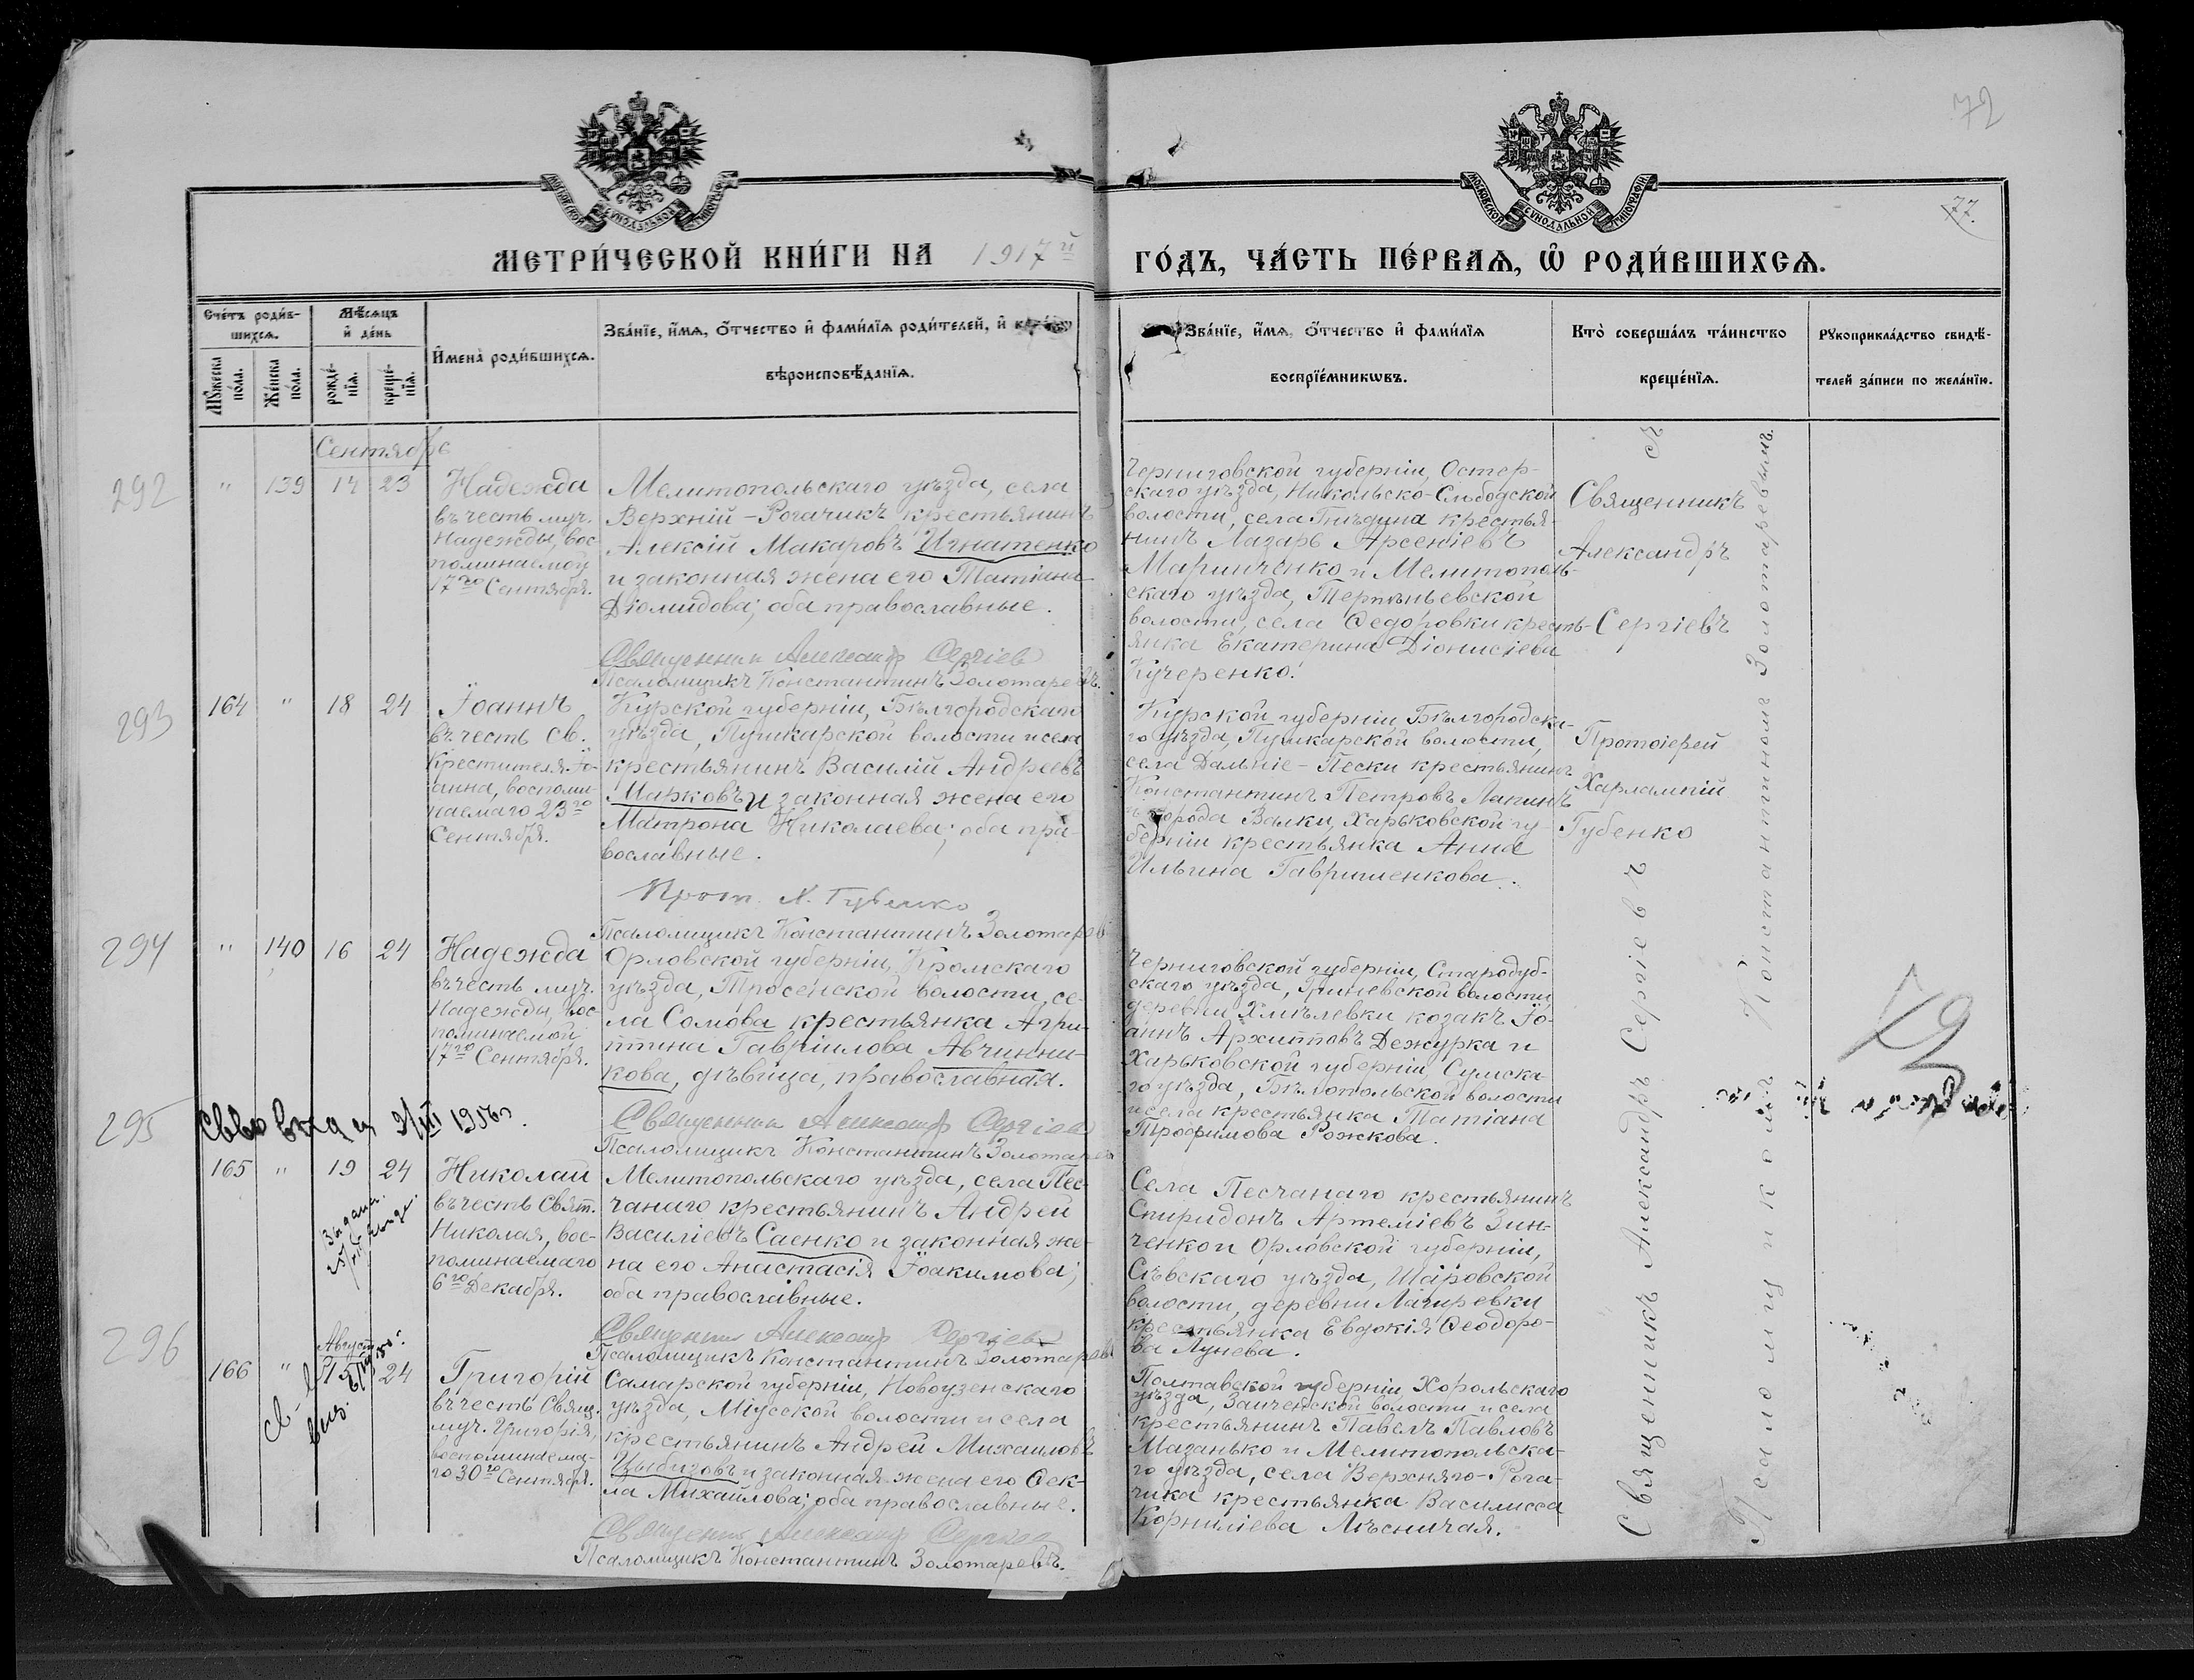 72
77.
МОСКОВСКОЙ СѴНОДАЛЬНОЙ ТИПОГРАФІИ
МОСКОВСКОЙ СѴНОДАЛЬНОЙ ТИПОГРАФІИ.
МЕТРИ́ЧЕСКОЙ КНИ́ГИ НА 1917й ГО́ДЪ, ЧА́СТЬ ПЕ́РВАѦ, Ѡ РОДИ́ВШИХСѦ.
Сче́тъ роди́в-
шихсѧ.
Мꙋ́жеска по́ла.
Же́нска по́ла.
Мѣ́сѧцъ и де́нь
рожде́-нїѧ.
креще́-нїѧ.
Имена̀ роди́вшихсѧ.
Зва́нїе, и́мѧ, о́тчество и фами́лїѧ роди́телей, и
вѣроисповѣ́данїѧ.
Зва́нїе, и́мѧ, о́тчество и фами́лїѧ
воспрїе́мникѡвъ.
Кто̀ соверша́лъ та́инство
креще́нїѧ.
Рꙋкоприкла́дство свидѣ́-
телей за́писи по жела́нїю.
Сентябрь
292
" 139 14 23
Надежда
въ честь муч.
Надежды, вос-
поминаемой
17го Сентября.
Мелитопольскаго уѣзда, села
Верхній-Рогачикъ крестьянинъ
Алексій Макаровъ Игнатенко
и законная жена его Татіана
Діомидова; оба православные.
Священник Александр Сергіев
Псаломщикъ Константинъ Золотаревъ.
Черниговской губерніи, Остер-
скаго уѣзда, Никольско-Слободской
волости, села Гнѣдина крестья-
нинъ Лазарь Арсеніевъ
Маринченко и Мелитополь-
скаго уѣзда, Терпѣньевской
волости, села Ѳедоровки кресть-
янка Екатерина Діонисіева
Кучеренко.
Священникъ
Александръ
Сергіевъ
293
164 " 18 24
Іоаннъ
въ честь Св.
Крестителя Іо-
анна, воспоми-
наемаго 23го
Сентября.
Курской губерніи, Бѣлгородскаго
уѣзда, Пушкарской волости и села
крестьянинъ Василій Андреевъ
Марковъ и законная жена его
Матрона Николаева; оба пра-
вославные.
Прот. Х. Губенко
Псаломщикъ Константинъ Золотарев
Курской губерніи Бѣлгородска-
го уѣзда, Пушкарской волости,
села Дальніе-Пески крестьянинъ
Константинъ Петровъ Лапинъ
и города Валки, Харьковской гу-
берніи крестьянка Анна
Ильина Гавришенкова.
Протоіерей
Харлампій
Губенко
294
" 140 16 24
Надежда
въ честь муч.
Надежды, вос-
поминаемой
17го Сентября.
Орловской губерніи, Кромскаго
уѣзда, Тросенской волости, се-
ла Сомова крестьянка Агри-
ппина Гавріилова Авчинни-
кова, дѣвица, православная.
Священник Александр Сергіев
Псаломщикъ Константинъ Золотарев
Черниговской губерніи, Стародуб-
скаго уѣзда, Гриневской волости,
деревни Хмѣлевки козакъ Іо-
аннъ Архипповъ Дежурка и
Харьковской губерніи, Сумска-
го уѣзда, Бѣлопольской волости
и села крестьянка Татіана
Трофимова Рожкова.
295
165 " 19 24
Николай
въ честь Свят.
Николая, вос-
поминаемаго
6го Декабря.
Мелитопольскаго уѣзда, села Пес-
чанаго крестьянинъ Андрей
Василіевъ Саенко и законная же-
на его Анастасія Іоакимова;
оба православные.
Священник Александр Сергіев
Псаломщикъ Константинъ Золотарев
Села Песчанаго крестьянинъ
Спиридонъ Артеміевъ Зин-
ченко и Орловской губерніи,
Сѣвскаго уѣзда, Шаровской
волости, деревни Лагиревки
крестьянка Евдокія Ѳеодоро-
ва Лунева.
296
Август
166 " 24
Григорій
въ честь Свящ.
муч. Григорія,
воспоминаема-
го 30го Сентября.
Самарской губерніи, Новоузенскаго
уѣзда, Міусской волости и села
крестьянинъ Андрей Михаиловъ
Цыбизовъ и законная жена его Ѳек-
ла Михайлова; оба православные.
Священник Александр Сергіев
Псаломщикъ Константинъ Золотаревъ.
Полтавской губерніи, Хорольскаго
уѣзда, Заиченской волости и села
крестьянинъ Павелъ Павловъ
Мазанько и Мелитопольска-
го уѣзда, села Верхняго-Рога-
чика крестьянка Василисса
Корниліева Лѣсничая.
Священникъ Александръ Сергіевъ съ
Псаломщикомъ Константиномъ Золотаревымъ.